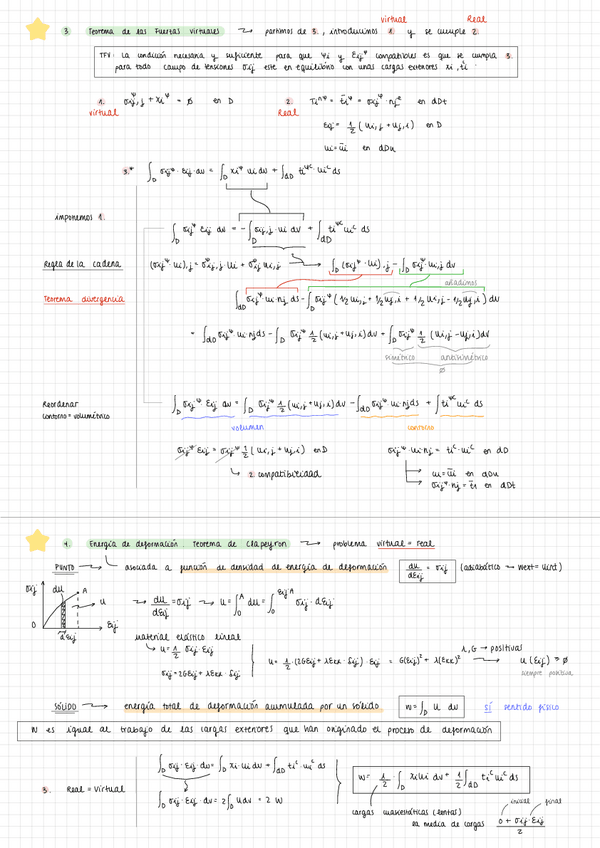 virtual Real
3. Teorema de las Fuerzas Virtuales → partimos de 3., introducimos 1. y se cumple 2.
TFV: La condición necesaria y suficiente para que ui y εij compatibles es que se cumpla 3.
para todo campo de tensiones σij este en equilibrio con unas cargas exteriores xi, ti
1. σij^ψ,j + xi^ψ = 0 en D
virtual
2. ti^ψ = σij^ψ · nj en ∂Dt
Real
εij = 1/2 (ui,j + uj,i) en D
ui = ūi en ∂Du
3.* ∫D σij^ψ · εij · dv = ∫D xi^ψ ui dv + ∫∂D ti^ψc · ui^c ds
imponemos 1.
∫D σij^ψ εij dv = - ∫D σij,j · ui dv + ∫∂D ti^ψc ui^c ds
Regla de la cadena
(σij^ψ ui),j = σij^ψ,j · ui + σij^ψ ui,j → ∫D (σij^ψ · ui),j - ∫D σij^ψ · ui,j dv
añadimos
Teorema divergencia
∫∂D σij^ψ · ui · nj ds - ∫D σij^ψ (1/2 ui,j + 1/2 uj,i + 1/2 ui,j - 1/2 uj,i) dv
= ∫∂D σij^ψ ui · nj ds - ∫D σij^ψ 1/2 (ui,j + uj,i) dv + ∫D σij^ψ 1/2 (ui,j - uj,i) dv
simétrico antisimétrico
0
Reordenar
contorno = volumétrico
∫D σij^ψ εij dv = ∫D σij^ψ 1/2 (ui,j + uj,i) dv - ∫∂D σij^ψ · ui · nj ds + ∫ ti^ψc ui^c ds
volumen contorno
σij^ψ εij = σij^ψ 1/2 (ui,j + uj,i) en D
σij^ψ · ui · nj = ti^c · ui^c en ∂D
→ 2. compatibilidad
ui = ūi en ∂Du
σij^ψ · nj = ti en ∂Dt
4. Energía de deformación Teorema de Clapeyron → problema virtual = real
PUNTO → asociada a función de densidad de energía de deformación du/dεij = σij (adiabático → wext = uint)
σij du A
u
0 dεij εij
→ du/dεij = σij → u = ∫0^A du = ∫0^εij^A σij · dεij
Material elástico lineal
→ u = 1/2 σij · εij
σij = 2Gεij + λεkk · δij
u = 1/2 · (2Gεij + λεkk · δij) · εij = G(εij)² + λ(εkk)² → u(εij) ≥ 0
λ, G → positiva
siempre positiva
SÓLIDO → energía total de deformación acumulada por un sólido W = ∫D u dv sí sentido físico
W es igual al trabajo de las cargas exteriores que han originado el proceso de deformación
3. Real = Virtual
∫D σij · εij · dv = ∫D xi · ui dv + ∫∂D ti^c · ui^c ds
∫D σij · εij · dv = 2 ∫D u dv = 2 W
W = 1/2 · ∫D xi ui dv + 1/2 ∫∂D ti^c ui^c ds
cargas cuasiestáticas (lentas)
la media de cargas
inicial final
0 + σij · εij / 2